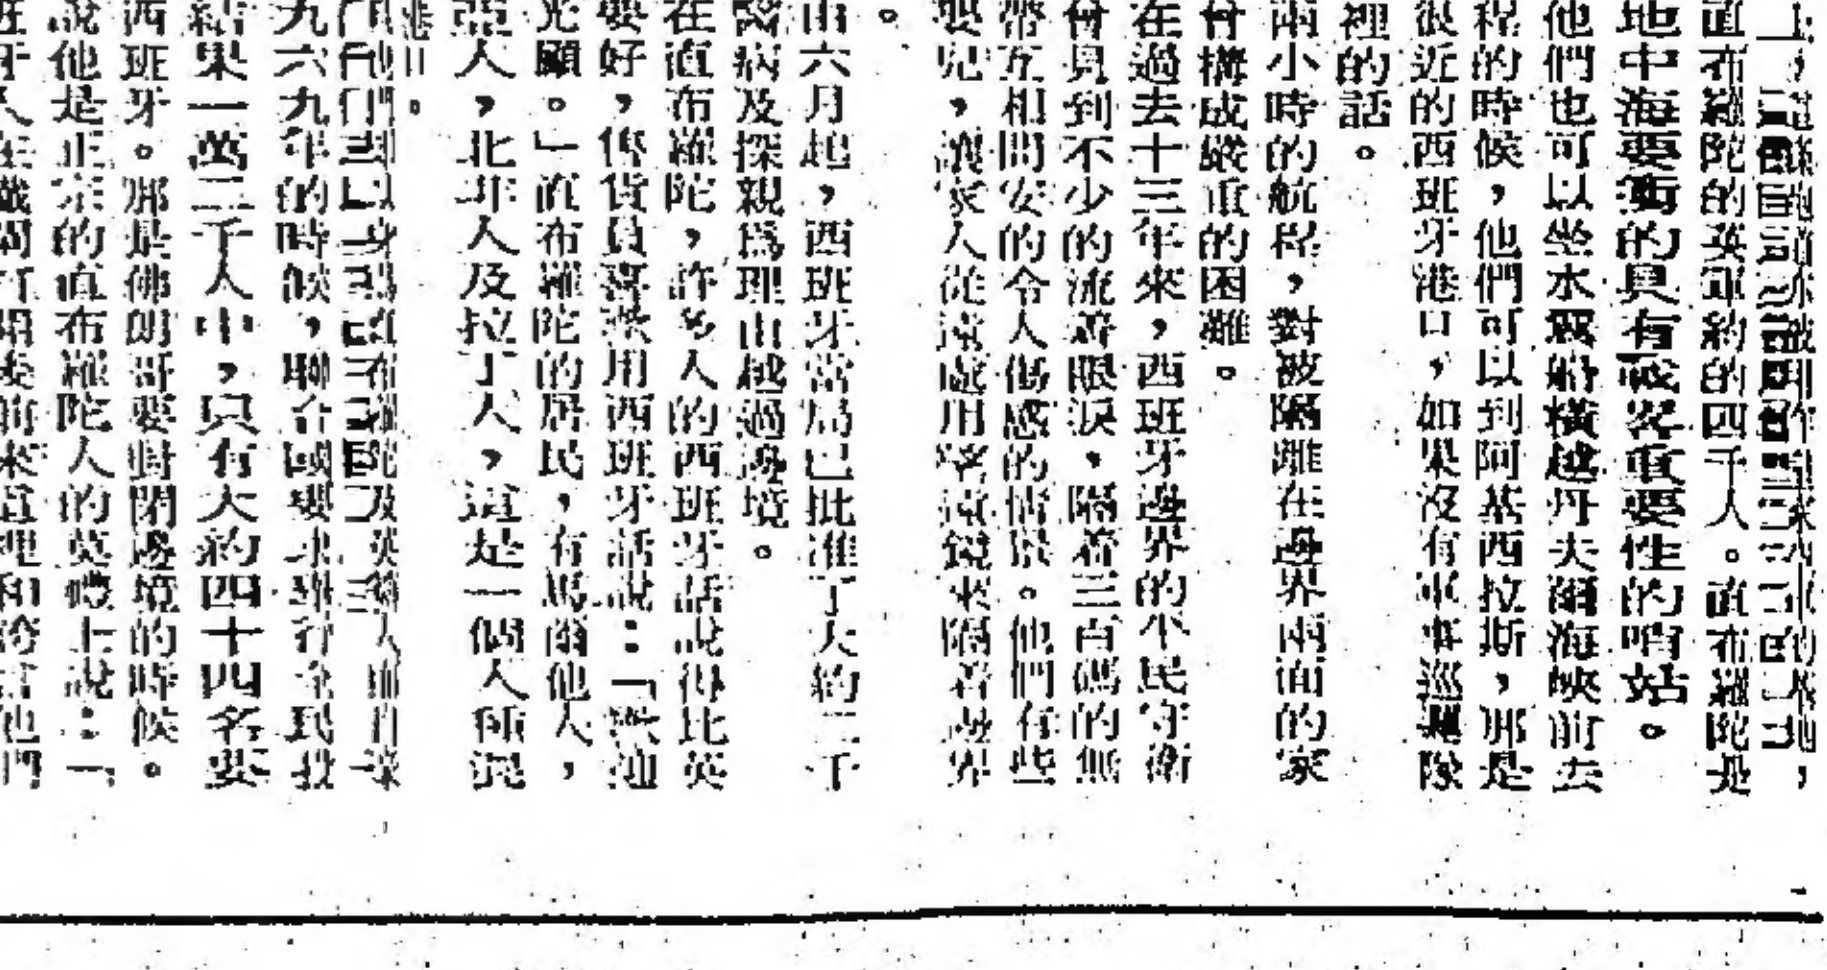 直布羅陀的英軍約的四千人。直布羅陀是
地中海要衝的具有戰畧重要性的哨站。
他們也可以坐水翼船橫越丹夫爾海峽前去
程的時候，他們可以到阿基西拉斯，那是
很近的西班牙港口，如果沒有軍事巡邏隊
裡的話。
兩小時的航程，對被隔離在邊界兩面的家
會構成嚴重的困難。
在過去十三年來，西班牙邊界的小民守衛
會見到不少的流着眼淚，隔着三百碼的無
帶互相問安的令人傷感的情景。他們有些
嬰兒，讓家人從遠處用望遠鏡來隔着邊界
。
由六月起，西班牙當局已批准了大約二千
醫病及探親爲理由越過邊境。
在直布羅陀，許多人的西班牙話說得比英
要好，售貨員喜歡用西班牙話說：「歡迎
光顧。」直布羅陀的居民，有馬爾他人，
亞人，北非人及拉丁人，這是一個人種混
港口。
九六九年的時候，聯合國要求舉行全民投
結果一萬二千人中，只有大約四十四名要
西班牙。那是佛朗哥要對閉邊境的時候。
說他是正宗的直布羅陀人的英禮士說：「